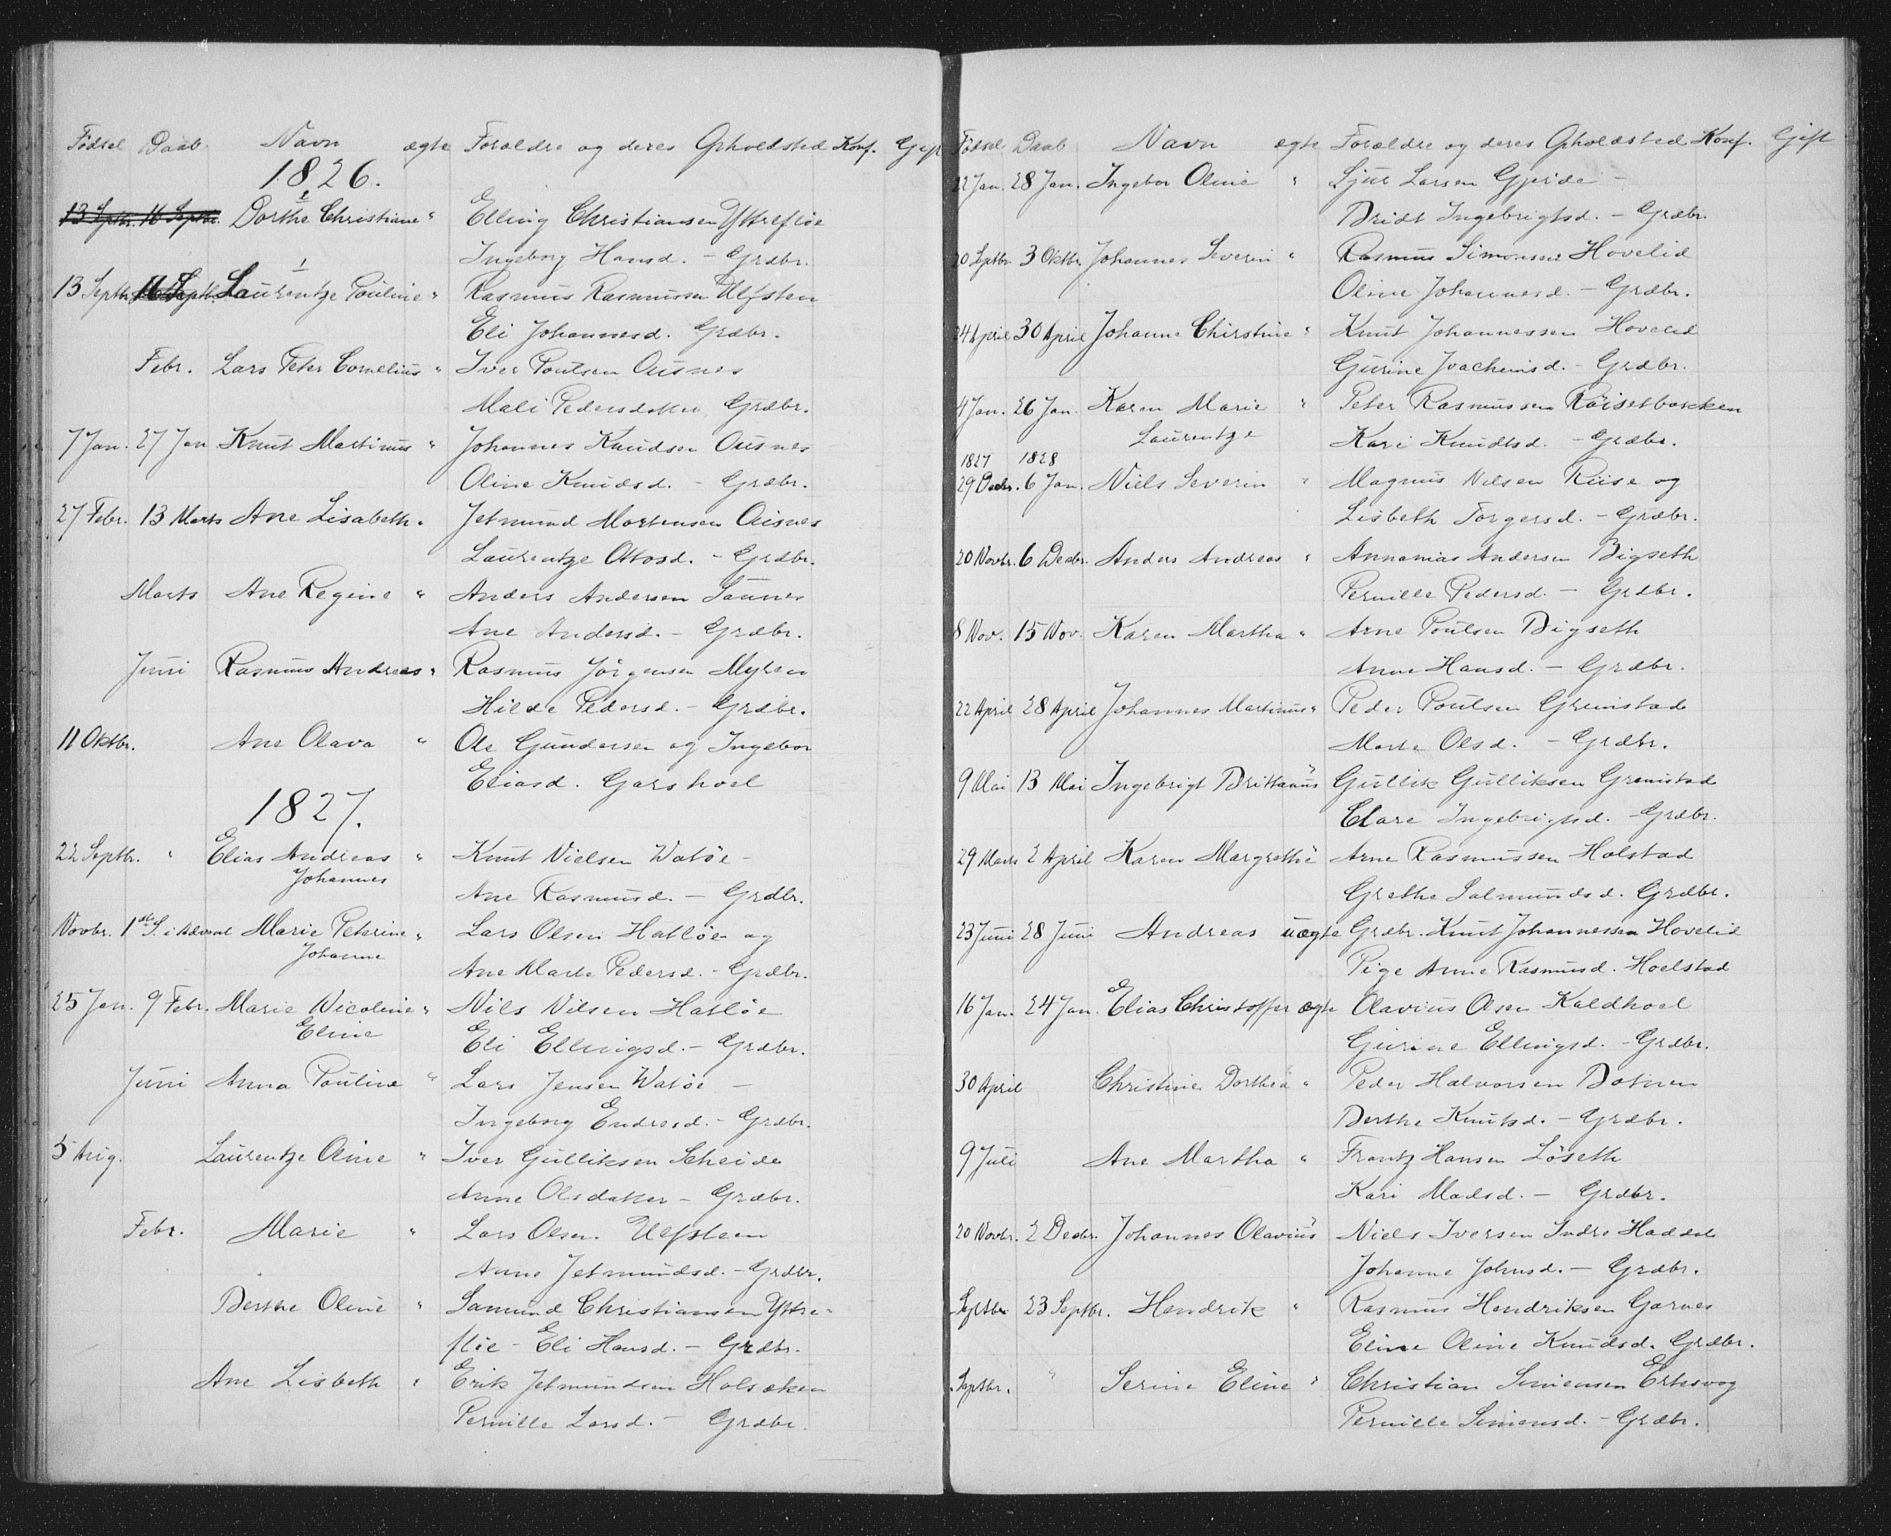 Fødsel Daab Navn ægte Forældre og deres Opholdsted Konf. Gift
1826.
13 Septbr. 16 Septbr. Dorthe Christiane " Elling Christiansen Yttrefløe
Ingeborg Hansd. - Grdbr.
13 Septbr. 16 Septbr. Laurentze Pouline " Rasmus Rasmussen Ulfsten
Eli Johannesd. Grdbr.
Febr. Lars Peter Cornelius " Iver Poulsen Ousnes
Mali Pedersdatter Grdbr.
7 Jan. 27 Jan Knut Martinus " Johannes Knudsen Ousnes
Oline Knudsd. - Grdbr.
27 Febr. 13 Marts Ane Lisabeth " Jetmund Mortensen Ousnes
Laurentze Ottosd. - Grdbr.
Marts Ane Regine " Anders Andersen Saunes
Ane Andersd. - Grdbr.
Juni Rasmus Andreas " Rasmus Jørgensen Myren
Hilde Pedersd. - Grdbr.
11 Oktbr. Ane Olava " Ole Gundersen og Ingebor
Eliasd. Garshoel
1827.
22 Septbr. " Elias Andreas " Knut Nielsen Watøe -
Johannes
Ane Rasmusd. - Grdbr.
Novbr. 1ste S. i Advent Marie Peterine " Lars Olsen Hatløe og
Johanne
Ane Marte Pedersd. - Grdbr.
25 Jan. 9 Febr. Marie Nicoline " Nils Nilsen Hatløe
Eline
Eli Ellingsd. - Grdbr.
Juni Anna Pouline " Lars Jensen Watøe -
Ingeborg Endresd. - Grdbr.
5 Aug. Laurentze Oline " Iver Gulliksen Scheide
Anne Olsdatter - Grdbr.
Febr. Marie " Lars Olsen Ulfsteen
Anne Jetmundsd. - Grdbr.
Berthe Oline " Samund Christiansen Yttre-
fløe - Eli Hansd. - Grdbr.
Ane Lisbeth " Erik Jetmundsen Holsæken
Pernille Larsd. - Grdbr.
Fødsel Daab Navn ægte Forældre og deres Opholdsted Konf. Gift
22 Jan. 28 Jan. Ingebor Oline " Sjur Larsen Gjerde -
Bridt Ingebrigtsd. - Grdbr.
20 Septbr. 3 Oktbr. Johannes Severin " Rasmus Simonsen Hovelid
Oline Johannesd. - Grdbr.
24 April 30 April Johanne Chirstine " Knut Johannessen Hovelid
Gurine Joachimsd. - Grdbr.
4 Jan. 26 Jan. Karen Marie " Peter Rasmussen Røisetbakken
Laurentze Kari Knudtsd. - Grdbr.
1827 1828
29 Decbr. 6 Jan. Niels Severin " Magnus Nilsen Riise og
Lisbeth Torgersd. - Grdbr.
20 Novbr. 6 Decbr. Anders Andreas " Annanias Andersen Bigseth
Pernille Pedersd. - Grdbr.
8 Nov. 15 Nov. Karen Martha " Arne Poulsen Bigseth
Anne Hansd. - Grdbr.
22 April 28 April Johannes Martinus " Peder Poulsen Grimstad
Marte Olsd. - Grdbr.
9 Mai 13 Mai Ingebrigt Brittanus " Gullik Gulliksen Grimstad
Clare Ingebrigtsd. - Grdbr.
29 Marts 2 April Karen Margrethe " Arne Rasmussen Holstad
Grethe Salmundsd. Grdbr.
23 Juni 28 Juni Andreas uægte Grdbr. Knut Johannessen Hovelid
Pige Anne Rasmusd. Hoelstad
16 Jan. 24 Jan. Elias Christoffer ægte Olavius Olsen Kaldhoel
Gurine Ellingsd. - Grdbr.
30 April Christine Dorthea " Peder Halvorsen Botnen
Berthe Knutsd. - Grdbr.
9 Juli Ane Martha " Frantz Hansen Løseth
Kari Madsd. - Grdbr.
20 Novbr. 2 Decbr. Johannes Olavius " Niels Iversen Indre Haddal
Johanne Johnsd. - Grdbr.
Septbr. 23 Septbr. Hendrik " Rasmus Hendriksen Garnes
Eline Oline Knudsd. Grdbr.
Septbr. " Serine Eline " Christian Simensen Eriksvog
Pernille Simensd. - Grdbr.